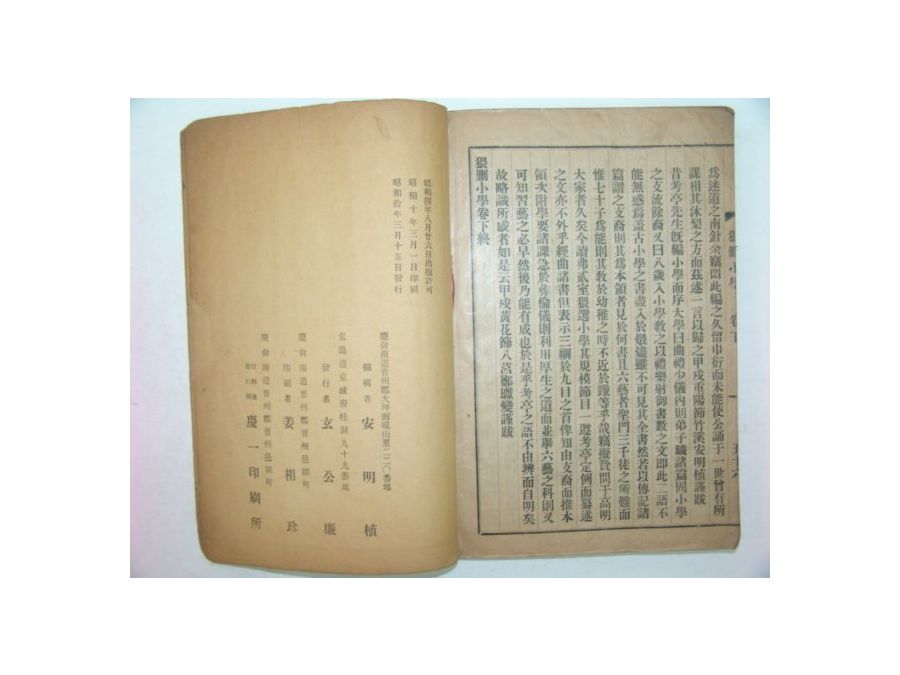 爲迷道之南針余竊悶此編之久留巾衍而未能使公誦于一世曾有所
謀相其沐梨之方而茲述一言以歸之甲戌重陽節竹溪安明植謹跋
昔考亭先生旣編小學而序大學曰曲禮少儀內則弟子職諸篇固小學
之支流餘裔又曰八歲入小學敎之以禮樂射御書數之文卽此二語不
能無惑焉盖古小學之書盡入於煅燼雖不可見其全書然若以傳記諸
篇謂之支裔則其爲本領者見於何書且六藝者聖門三千徒之所難而
惟七十子爲能則其敎於幼稚之時不近於躐等乎哉竊擬質問于高明
大家者久矣今讀弗貳室猥選小學其規模節目一遵考亭定例而纂述
之文亦不外乎經曲諸書但表示三綱於九目之首俾知由支裔而推本
領次附學要諸課急於彜倫儀則利用厚生之道而並擧六藝之科則又
可知習藝之必早然後乃能有成也於是乎考亭之語不由辨而自明矣
故略識所感者如是云甲戌黃花節八莒鄭 謹跋
猥刪小學卷下終
猥刪小學 卷下 五十六
昭和四年八月廿六日出版許可
昭和十年三月一日印刷
昭和拾年三月十五日發行
慶尙南道晋州郡大坪面硯山里二二〇番地
編輯者 安明植
京畿道京城府桂洞九十九番地
發行者 玄公廉
慶尙南道晋州郡晋州邑錦町
印刷者 姜相珍
慶尙南道晋州郡晋州邑錦町
慶一印刷所